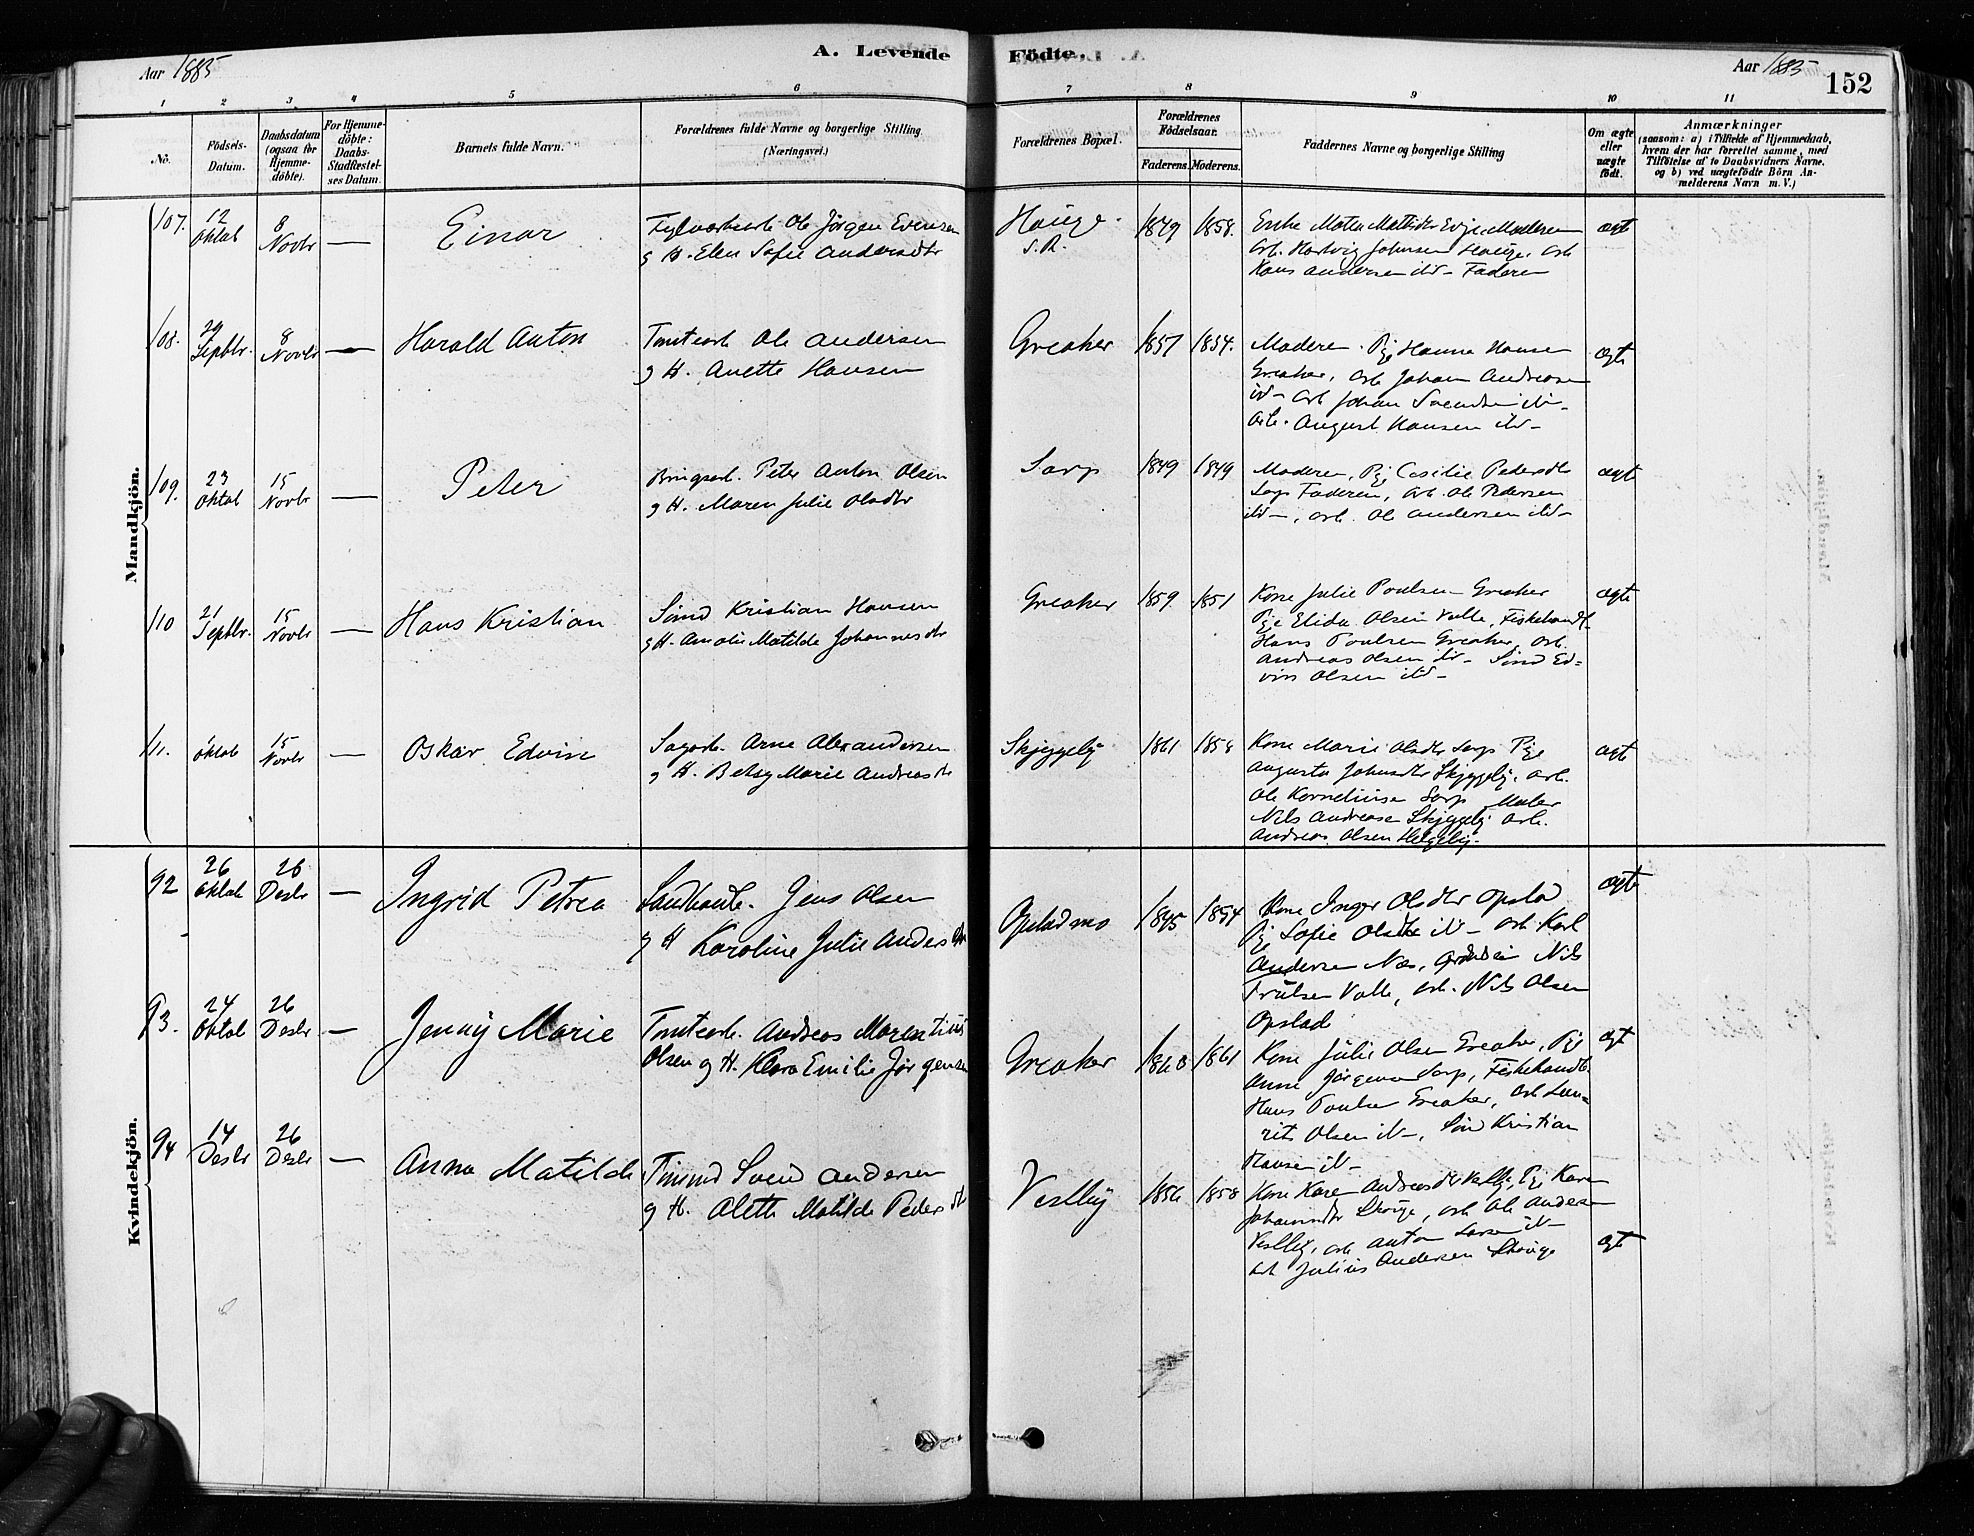 Aar 1885
A. Levende
Födte.
Aar 1885
152
1 2 3 4 5 6 7 8 9 10 11
No.
Födsels-
Datum.
Daabsdatum
(ogsaa for
Hjemme-
döbte).
For Hjemme-
döbte:
Daabs-
Stadfæstel-
ses Datum.
Barnets fulde Navn.
Forældrenes fulde Navne og borgerlige Stilling
(Næringsvei.)
Forældrenes Bopæl.
Forældrenes
Födselsaar.
Faderens. Moderens.
Faddernes Navne og borgerlige Stilling
Om ægte
eller
uægte
födt.
Anmærkninger
(saasom: a) i Tilfælde af Hjemmedaab,
hvem der har forrettet samme, med
Tilföielse af to Daabsvidners Navne.
og b) ved uægtefödte Börn An-
melderens Navn m. V.)
Mandkjön.
107. 12 Oktob 8 Novbr — Einar
Ole Jörgen Evensen
g H. Elen Sofie Andersdtr
Hauge
S. R.
1849 1858.
Enke Mathilde Moderen
Arb. Hartvig Johnsen Hauge, Arb
Hans Andersen ibd — Faderen
ægt
108. 29 Septbr. 8 Novbr — Harald Anton
Tomtearb Ole Andersen
g H. Anette Hansen
Greaker 1857 1854.
Moderen. Pige Hanna Hansen
Greaker, Arb Johan Andreasen
ibd — Arb Johan Svendsen ibd —
Arb. August Hansen ibd —
ægte
109. 23 Oktob 15 Novbr — Peter
Peter Anton Olsen
g H. Maren Julie Olsdtr
Sarp 1849 1849
Moderen, Pige Cecilie Pedersdtr
Sarp Faderen, Arb. Ole Pedersen
ibd —, Arb. Ole Andersen ibd —
ægt
110 21 Septbr. 15 Novbr — Hans Kristian
Smed Kristian Hansen
g H. Amalie Matilde Johannesdtr
Greaker 1859 1851
Kone Julie Poulsen Greaker
Pige Elida Olsen Valle, Fiskehandl.
Hans Poulsen Greaker, Arb.
Andreas Olsen ibd — Smed Ed=
vin Olsen ibd —
ægte
111. Oktob 15 Novbr — Oskar Edvin
Sagarb. Arne Alexandersen
g H. Betsy Marie Andreasdtr
Skjeggeby 1861
Kone Marie Olsdtr Sarp Pige
Augusta Johnsdtr Skjeggeby, Arb.
Ole Korneliusen Sarp, Maler
Nils Andreasen Skjeggeby Arb.
Andreas Olsen Helgeby.
ægt
Kvindekjön.
92 26 Oktob 26 Desbr — Ingrid Petrea
Jens Olsen
g H Karoline Julie Andersdtr
Opstadmo 1845 1854
Kone Inger Olsdtr Opstad
Pige Sofie Olsdtr ibd — Arb Karl
Andersen Næs, Nils
Trulsen Valle, Arb. Nils Olsen
Opstad
ægt
93. 24 Oktob 26 Desbr — Jenny Marie
Tomtearb. Andreas Marentius
Olsen g H. Klara Emilie Jörgensen
Greaker 1860 1861
Kone Julie Olsen Greaker, Pige
Anna Jörgensen Sarp, Fiskehandl.
Hans Poulsen Greaker, Arb Lau=
rits Olsen ibd —, Smed Kristian
Hansen ibd —
ægt
94 14 Desbr 26 Desbr — Anna Matilde
Svend Andersen
g H. Alette Matilde Pedersdtr
Vestby 1856 1858
Kone Karen Andreasdtr Vestby, Pige Karen
Johannesdtr Hauge, Arb Ole Andersen
Vestby, Arb Anton Larsen ibd —
Arb Julius Andersen Hauge
ægt